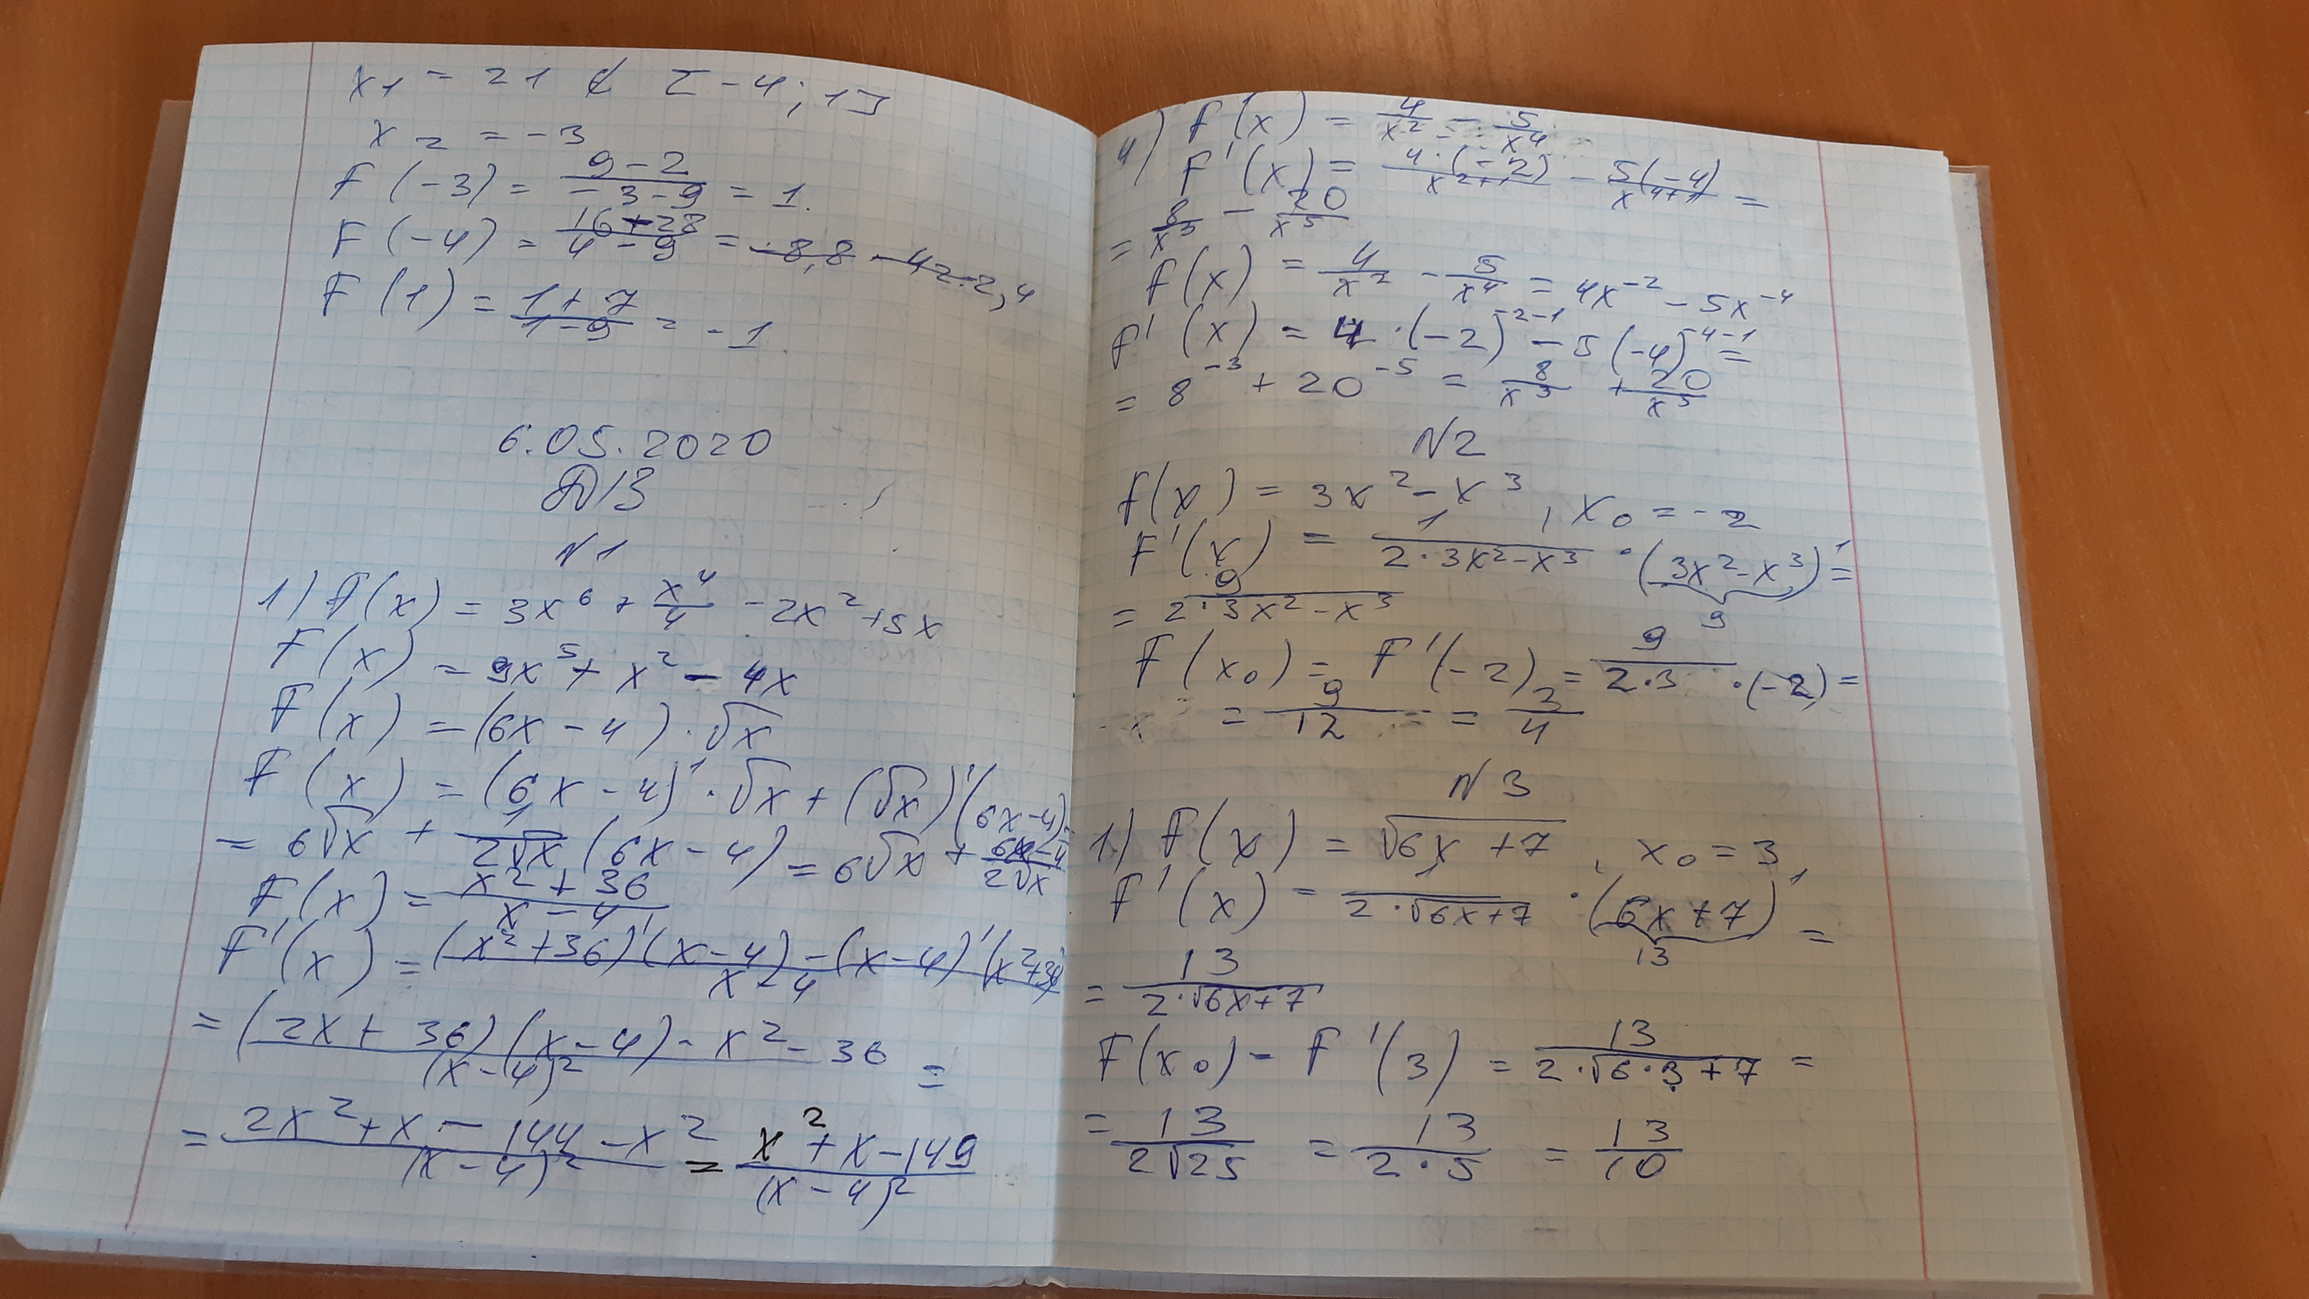 x₁ = 21 ∉ [-4; 1]
x₂ = -3
F(-3) = (9-2)/(-3-9) = 1.
F(-4) = (16+28)/(4-9) = -8,8 -42-2,4
F(1) = (1+7)/(1-9) = -1.
6.05.2020
Д/З
N1
1) f(x) = 3x⁶ + x⁴/4 - 2x² + 5x
F(x) = 9x⁵ + x² - 4x
F(x) = (6x-4)·√x
F(x) = (6x-4)'·√x + (√x)'(6x-4) =
= 6√x + 1/(2√x) (6x-4) = 6√x + (6x-4)/(2√x)
F(x) = (x²+36)/(x-4)
F'(x) = ((x²+36)'(x-4)-(x-4)'(x²+36))/(x-4)
= ((2x+36)(x-4)-x²-36)/(x-4)² =
= (2x²+x-144-x²)/(x-4)² = (x²+x-149)/(x-4)²
4) f(x) = 4/x² - 5/x⁴
F'(x) = 4·(-2)/x²⁺¹ - 5(-4)/x⁴⁺¹ =
= 8/x³ - 20/x⁵
f(x) = 4/x² - 5/x⁴ = 4x⁻² - 5x⁻⁴
F'(x) = 4·(-2)⁻²⁻¹ - 5(-4)⁻⁴⁻¹ =
= 8⁻³ + 20⁻⁵ = 8/x³ + 20/x⁵
N2
f(x) = 3x² - x³, x₀ = -2
F'(x) = 1/(2·3x²-x³) · (3x²-x³)' =
9
= 9/(2·3x²-x³)
F(x₀) = F'(-2) = 9/(2·3) ·(-2) =
= 9/12 = = 3/4
N3
1.) f(x) = √(6x+7), x₀ = 3,
F'(x) = 1/(2·√(6x+7)) · (6x+7)' =
13
= 13/(2·√(6x+7))
F(x₀) - F'(3) = 13/(2·√(6·3+7)) =
= 13/(2√25) = 13/(2·5) = 13/10